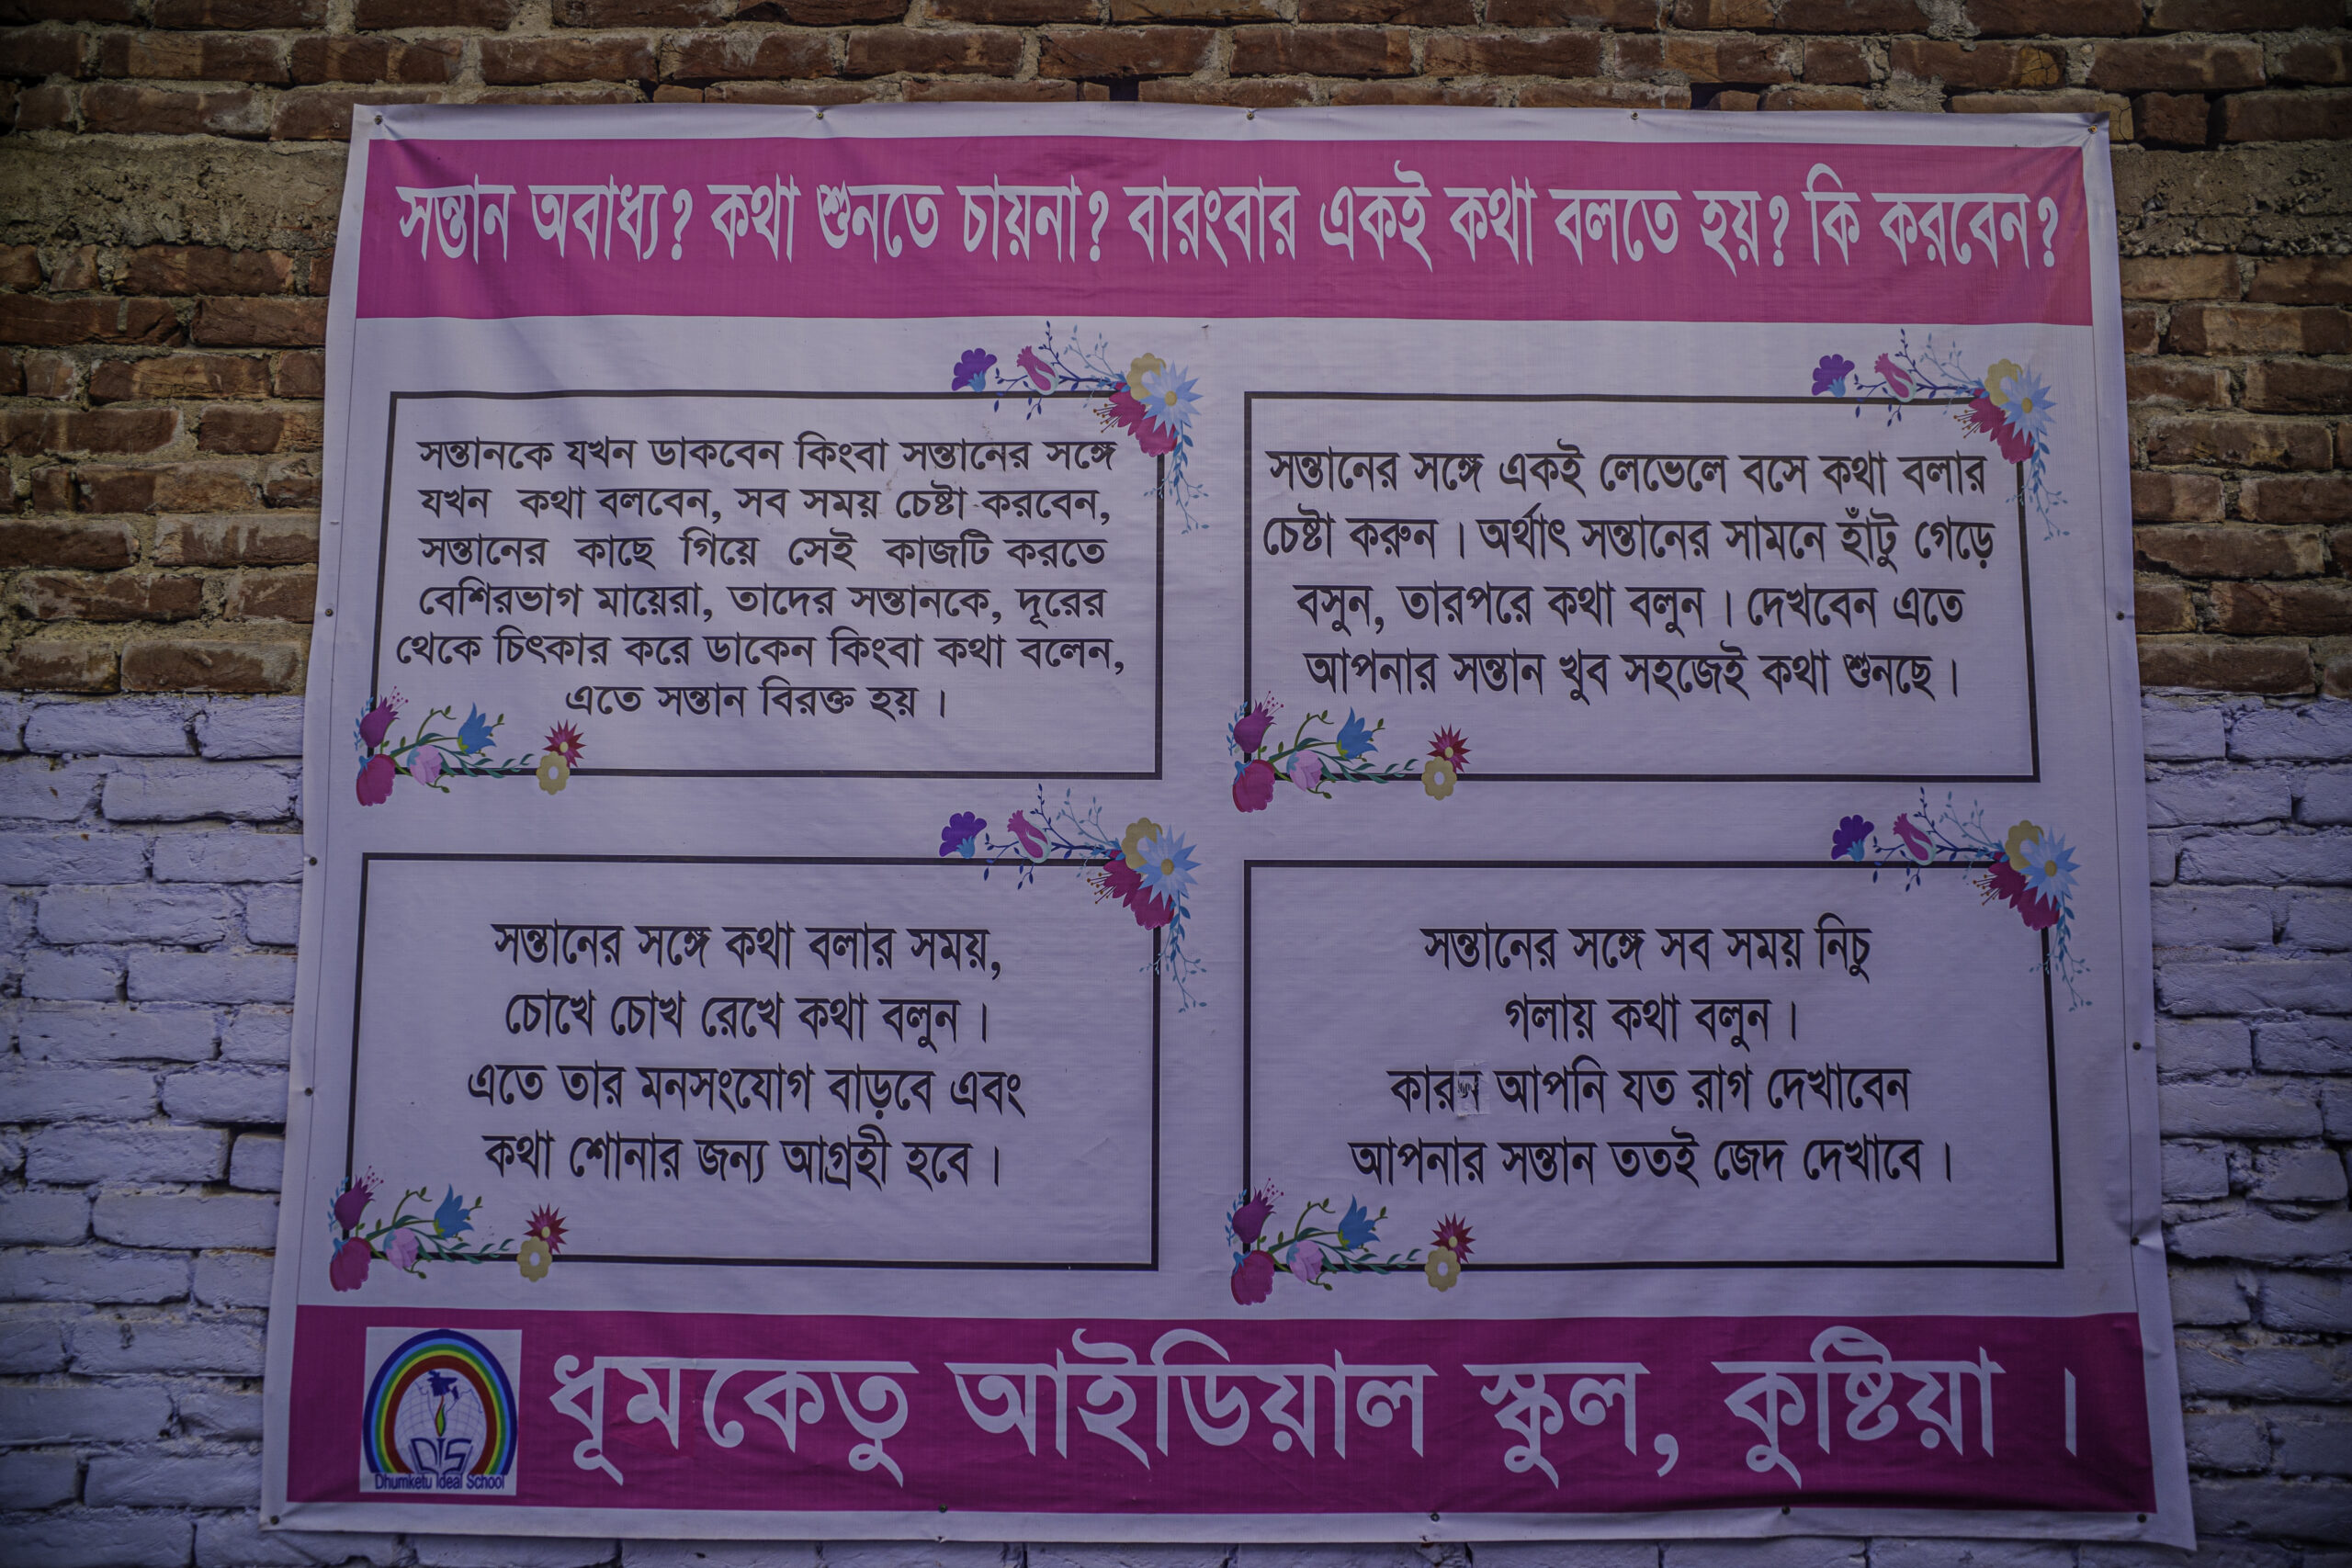 সন্তান অবাধ্য? কথা শুনতে চায়না? বারংবার একই কথা বলতে হয়? কি করবেন?
সন্তানকে যখন ডাকবেন কিংবা সন্তানের সঙ্গে
যখন কথা বলবেন, সব সময় চেষ্টা করবেন,
সন্তানের কাছে গিয়ে সেই কাজটি করতে
বেশিরভাগ মায়েরা, তাদের সন্তানকে, দূরের
থেকে চিৎকার করে ডাকেন কিংবা কথা বলেন,
এতে সন্তান বিরক্ত হয় ।
সন্তানের সঙ্গে একই লেভেলে বসে কথা বলার
চেষ্টা করুন । অর্থাৎ সন্তানের সামনে হাঁটু গেড়ে
বসুন, তারপরে কথা বলুন । দেখবেন এতে
আপনার সন্তান খুব সহজেই কথা শুনছে ।
সন্তানের সঙ্গে কথা বলার সময়,
চোখে চোখ রেখে কথা বলুন ।
এতে তার মনসংযোগ বাড়বে এবং
কথা শোনার জন্য আগ্রহী হবে ।
সন্তানের সঙ্গে সব সময় নিচু
গলায় কথা বলুন ।
আপনি যত রাগ দেখাবেন
আপনার সন্তান ততই জেদ দেখাবে ।
DIS
Dhumketu Ideal School
ধূমকেতু আইডিয়াল স্কুল, কুষ্টিয়া ।